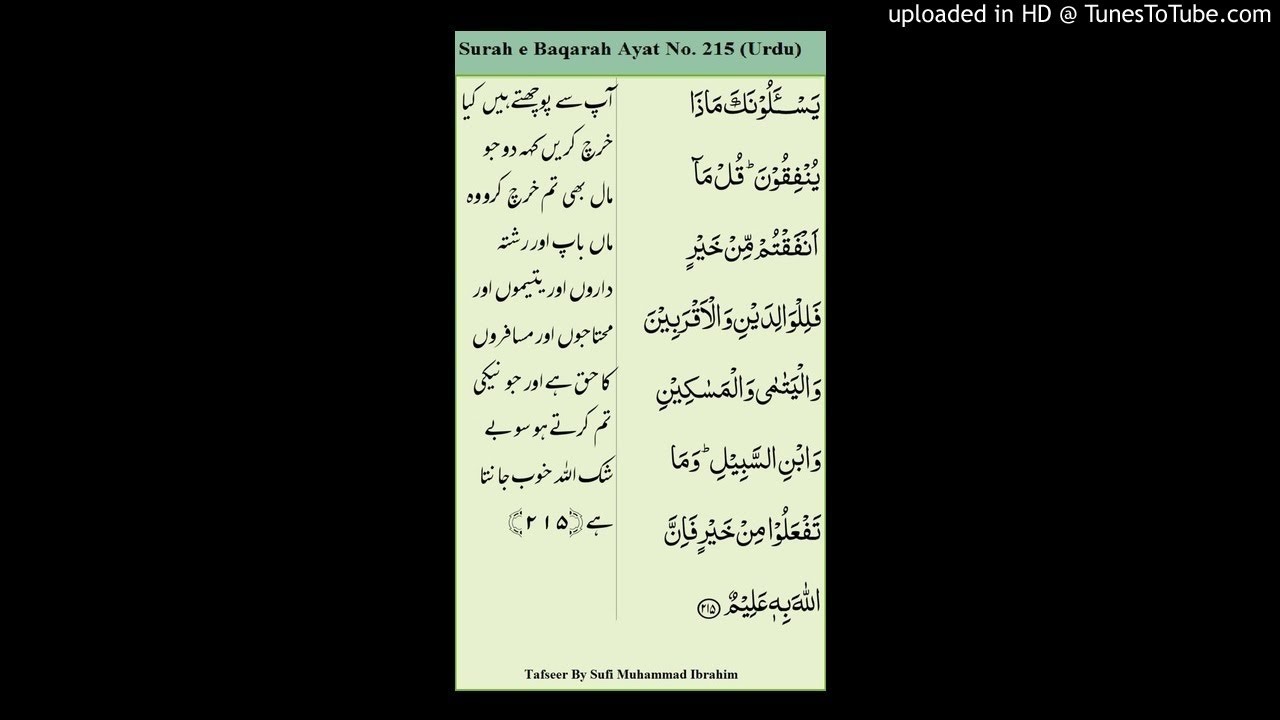 uploaded in HD @ TunesToTube.com
Surah e Baqarah Ayat No. 215 (Urdu)
یَسْــٴَـلُوْنَكَ مَاذَا
یُنْفِقُوْنَ ؕ قُلْ مَاۤ
اَنْفَقْتُمْ مِّنْ خَیْرٍ
فَلِلْوَالِدَیْنِ وَالْاَقْرَبِیْنَ
وَالْیَتٰمٰی وَالْمَسٰكِیْنِ
وَابْنِ السَّبِیْلِ ؕ وَمَا
تَفْعَلُوْا مِنْ خَیْرٍ فَاِنَّ
اللّٰهَ بِهٖ عَلِیْمٌ ﴿۲۱۵﴾
آپ سے پوچھتے ہیں کیا
خرچ کریں کہہ دو جو
مال بھی تم خرچ کرو وہ
ماں باپ اور رشتہ
داروں اور یتیموں اور
محتاجوں اور مسافروں
کا حق ہے اور جو نیکی
تم کرتے ہو سو بے
شک اللہ خوب جانتا
ہے ﴿۲۱۵﴾
Tafseer By Sufi Muhammad Ibrahim